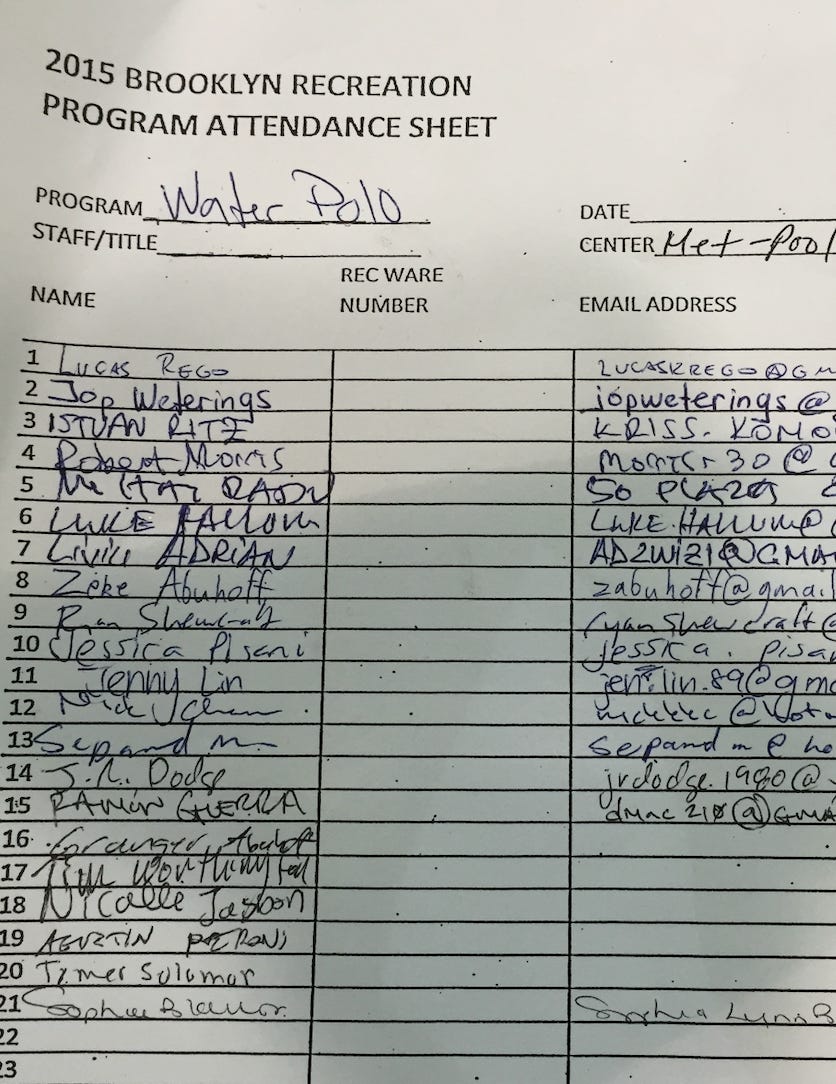 2015 BROOKLYN RECREATION
PROGRAM ATTENDANCE SHEET
PROGRAM Water Polo DATE
STAFF/TITLE CENTER Met-Pool
NAME REC WARE NUMBER EMAIL ADDRESS
1 LUCAS REGO LUCASKREGO@GM
2 Jop Weterings jopweterings@
3 ISTVAN RITZ KRISS. KOMO
4 Robert Morris 30 @
5 RADU SO
6 LUKE HALLUM LUKE.HALLUM@
7 Liviu ADRIAN AD2WIZ1@GMA
8 Zeke Abuhoff zabuhoff@gmail
9 Ryan Shewcraft ryan.shewcraft@
10 Jessica Pisani jessica.pisa
11 Jenny Lin jen.lin.89@gma
12 Nick
13 Sepand m sepand m @ ho
14 J.R. Dodge jrdodge.1980@
15 RAMÓN GUERRA dmac210@GMA
16 Granger Abuhoff
17 Tim Worthington
18 Nicolle
19 AGUSTIN PERONI
20 Timer Solomon
21 Sophia Sophia Lynn B
22
23